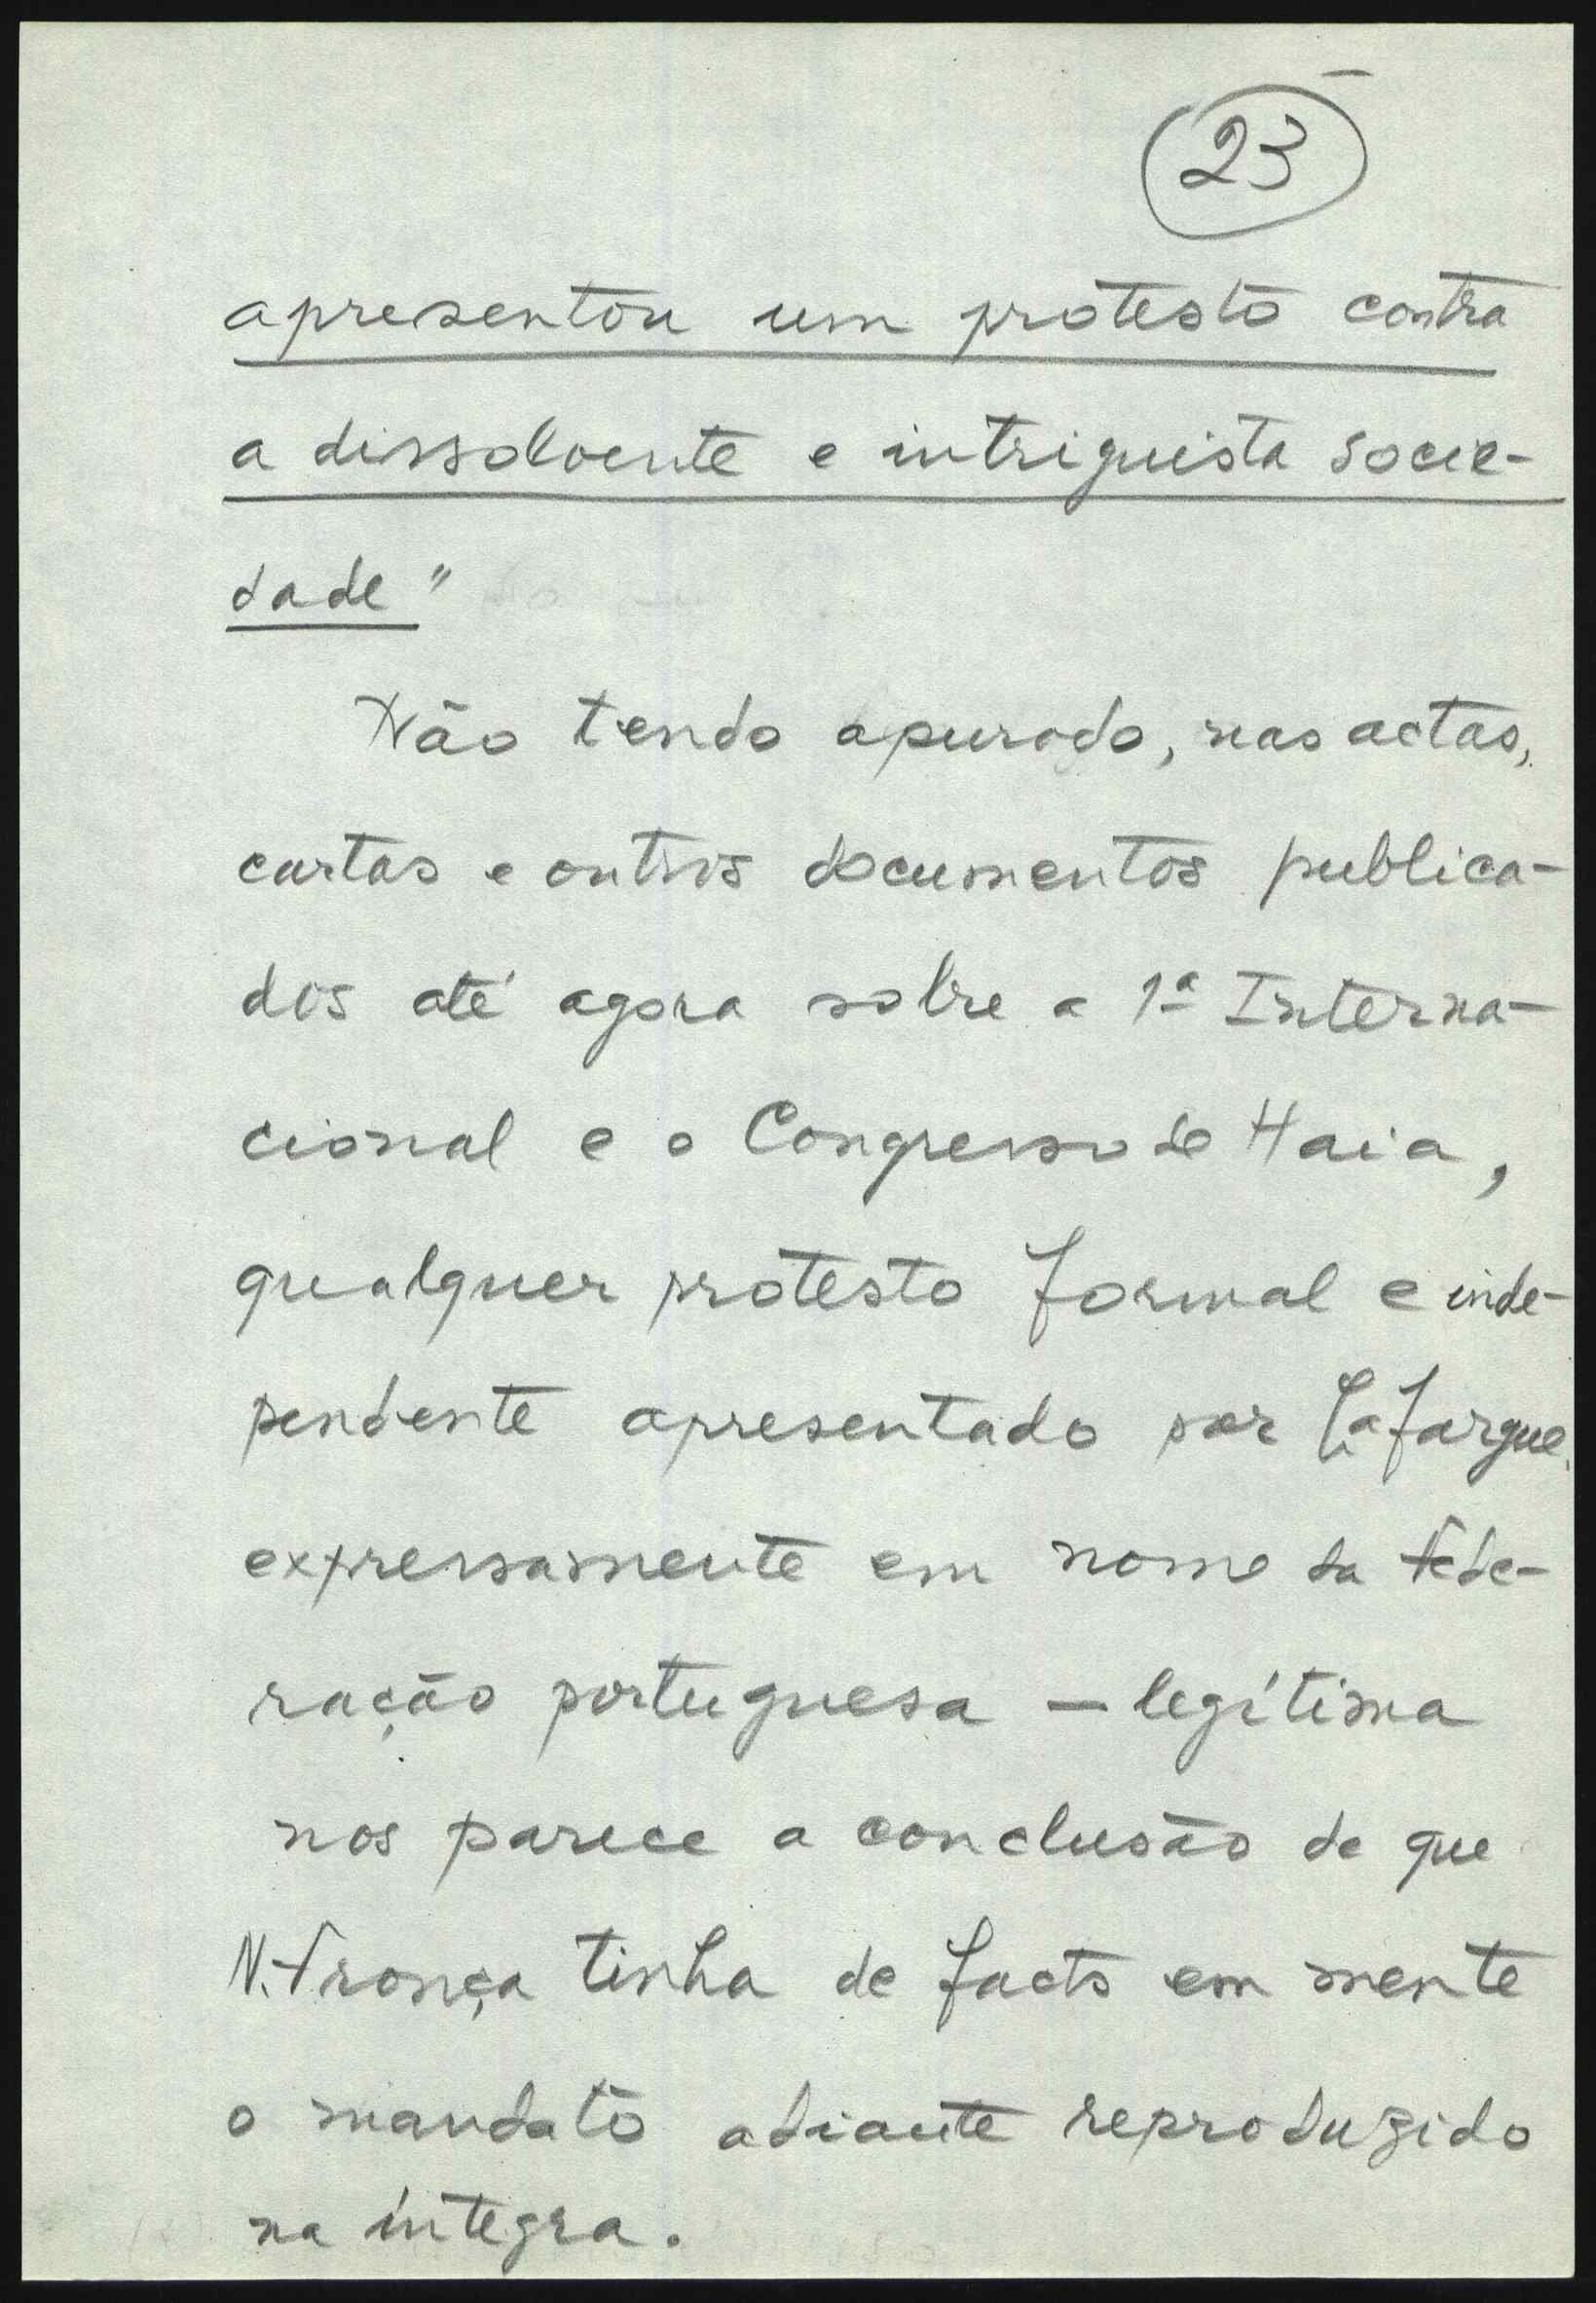 23
apresentou um protesto contra
a dissolvente e intriguista socie-
dade"
Não tendo apurado, nas actas,
cartas e outros documentos publica-
dos até agora sobre a 1ª Interna-
cional e o Congresso de Haia,
qualquer protesto formal e inde-
pendente apresentado por Lafargue,
expressamente em nome da Fede-
ração portuguesa — legítima
nos parece a conclusão de que
N. França tinha de facto em mente
o mandato adiante reproduzido
na íntegra.